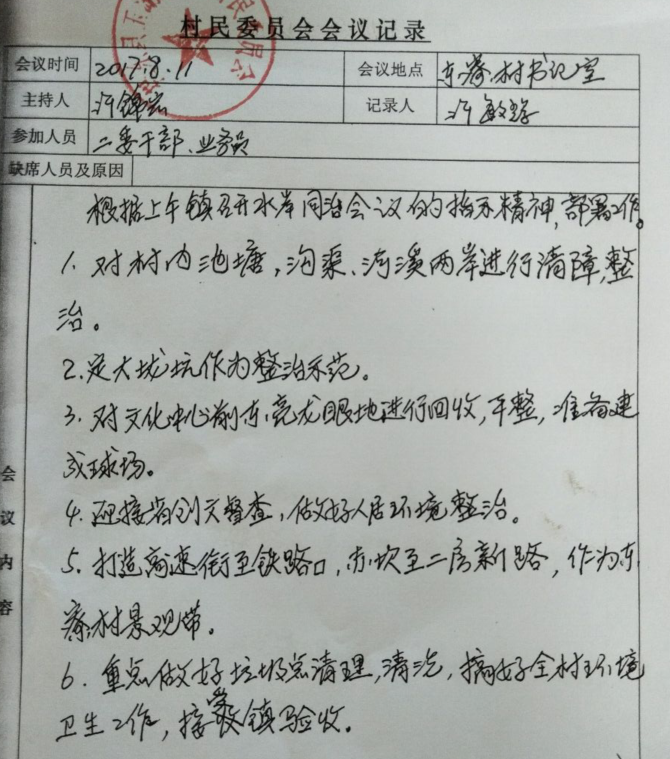 村民委员会会议记录
会议时间 2017.8.11 会议地点 东 村书记室
主持人 许锦 记录人 许敏
参加人员 二委干部、业务员
缺席人员及原因
会议内容
根据上午镇召开水岸同治会议的指示精神,部署工作。
1. 对村内池塘,沟渠、河溪两岸进行清障,整
治。
2.定大垅坑作为整治示范。
3. 对文化中心前东,亮龙眼地进行回收,平整,准备建
成球场。
4. 迎接省创文督查,做好人居环境整治。
5. 打造高速衔至铁路口,赤坎至二房新路,作为东
村景观带。
6. 重点做好垃圾点清理,清洗,搞好全村环境
卫生工作,接受镇验收。